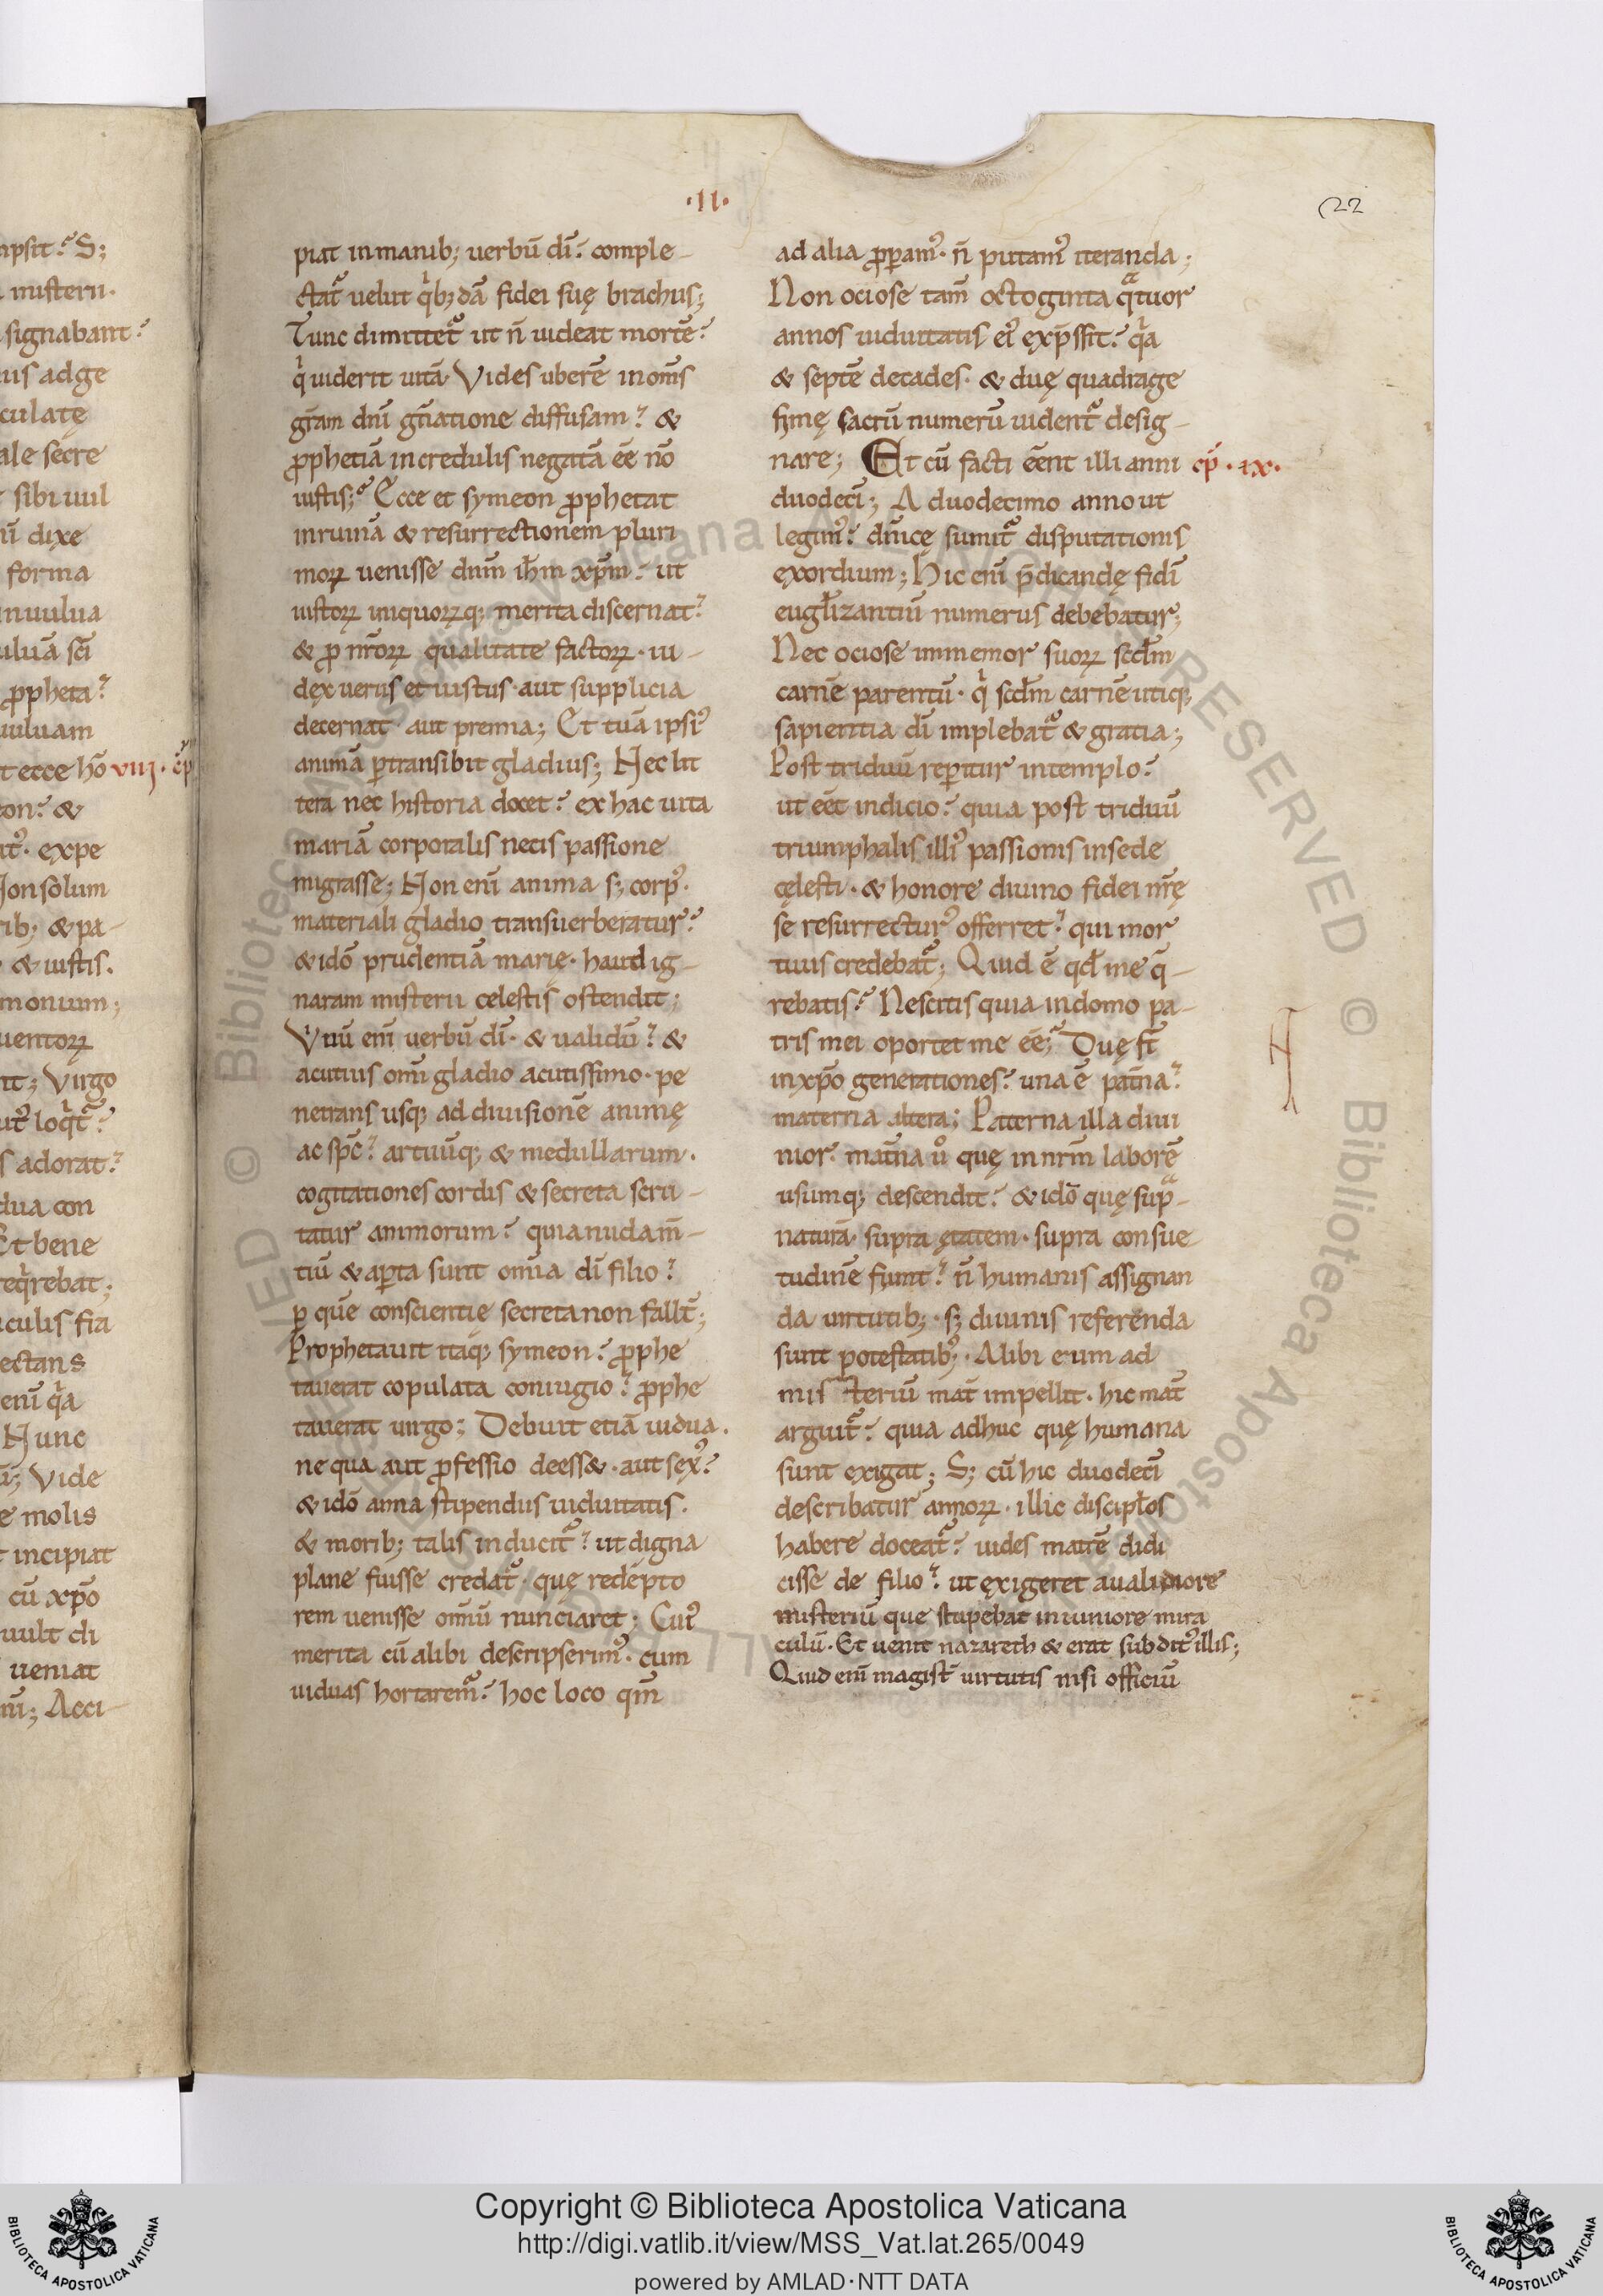 ·II·
22
piat in manib; uerbū dī? comple-
ctat᷑ uelut q̇b;dā fidei suę brachiis;
Tunc dimittet᷑ ut n̄ uideat mortē?
q̇ uiderit uitā· Vides uberē in om̄s
gr̄am dn̄i gn̄atione diffusam? &
ꝓphetiā incredulis negatā eē nō
iustis; Ecce et symeon ꝓphetat
in ruinā & resurrectionem pluri
moꝝ uenisse dnm̄ ih̄m xp̄m? ut
iustoꝝ iniquoꝝq; merita discernat?
& ꝓ nr̄oꝝ qualitate factoꝝ· iu-
dęx uerus et iustus· aut supplicia
decernat· aut premia; Et tuā ipsiꝰ
animā ꝑtransibit gladius; Nec lit
tera nec historia docet? ex hac uita
mariā corporalis necis passione
migrasse; Non enī anima s; corpꝰ·
materiali gladio transuerberatur?
& idō prudentiā marię· haud ig-
naram misterii celestis ostendit;
Viuū enī uerbū dī· & ualidū? &
acutius omī gladio acutissimo· pe
netrans usq; ad diuisionē animę
ac sp̄c? artuūq; & medullarum·
cogitationes cordis & secreta scru-
tatur animorum? quia nuda m̄-
tiū & aꝑta sunt om̄ia dī filio?
ꝑ quē conscientię secreta non fallt̄;
Prophetauit itaq; symeon? ꝓphe
tauerat copulata coniugio? ꝓphe
tauerat uirgo; Debuit etiā uidua·
ne qua aut ꝓfessio deess&· aut sexꝰ?
& idō anna stipendiis uiduitatis·
& morib; talis inducit᷑? ut digna
plane fuisse credat᷑· quę redēpto
rem uenisse omiū nunciaret; Cuiꝰ
merita cū alibi descripserimꝰ· cum
uiduas hortarem᷑? hoc loco qm̄
ad alia ꝓꝑamꝰ· n̄ putamꝰ iteranda;
Non ociose tam̄ octoginta qᷓtuor
annos uiduitatis eiꝰ exp̄ssit? q̇a
& septē decades· & duę quadrage
simę sacrū numerū uident᷑ desig-
nare; Et cū facti eēnt illi anni cp̄·ix·
duodecī; A duodecimo anno ut
legimꝰ? dn̄icę sumit᷑ disputationis
ęxordium; Hic enī p̄dicandę fidī
euglizantiū numerus debebatur;
Nec ociose immemor suoꝝ scdm̄
carnē parentū· q̇ scdm̄ carnē utiq;
sapientia dī implebat᷑ & gratia;
Post triduū reꝑitur in templo?
ut eēt indicio? quia post triduū
triumphalis illiꝰ passionis in sede
cęlesti· & honore diuino fidei nr̄ę
se resurrecturꝰ offerret? qui mor
tuus credebat᷑; Quid ē qd̄ me q̄-
rebatis? Nescitis quia in domo pa-
tris mei oportet me eē; Duę st̄
in xp̄o generationes? una ē pat̄na?
materna altera; Paterna illa diui
nior? mat̄na u̇ quę in nrm̄ laborē
usumq; descendit? & idō quę supᷓ-
naturā· supra ętatem· supra consue
tudinē fiunt? n̄ humanis assignan
da uirtutib;· s; diuinis referenda
sunt potestatib;· Alibi eum ad
mis teriū mat̄ impellit· hic mat̄
arguit᷑? quia adhuc quę humana
sunt exigat; S; cū hic duodecī
describatur annoꝝ· illic discip̄los
habere doceat᷑? uides matrē didi
cisse de filio? ut ęxigeret a ualidiore
misteriū que stupebat in iuniore mira
culū· Et uenit nazareth & erat subditꝰ illis;
Quid enī magist̄ uirtutis nisi officiū
Copyright © Biblioteca Apostolica Vaticana
http://digi.vatlib.it/view/MSS_Vat.lat.265/0049
powered by AMLAD·NTT DATA
BIBLIOTECA APOSTOLICA VATICANA
BIBLIOTECA APOSTOLICA VATICANA